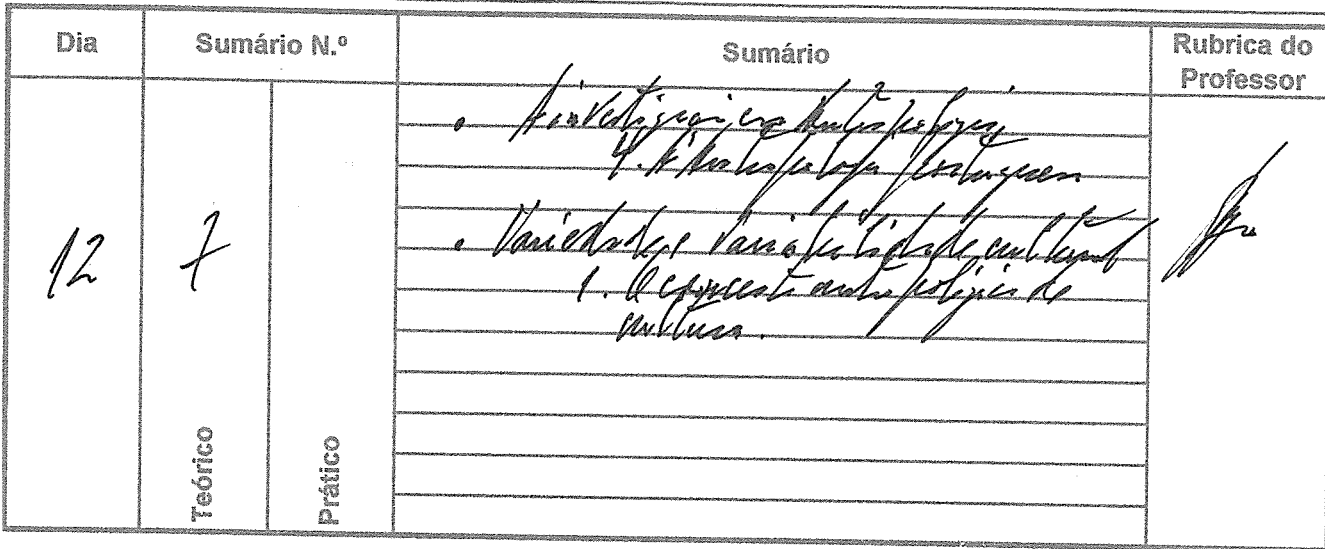 Dia Sumário N.º Sumário Rubrica do Professor
12 7
• A investigação em Antropologia
4. A Antropologia portuguesa
• Variedade e variabilidade cultural
1. O conceito antropológico de
cultura.
Teórico Prático